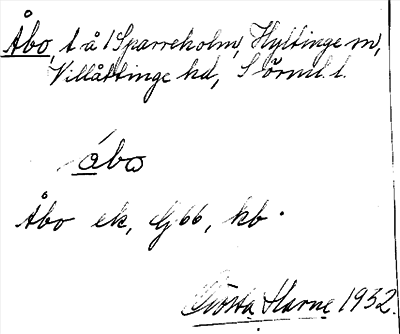 Åbo, t å 1 Sparreholm, Hyltinge sn,
Villåttinge hd, Sörml. l.
åbω
Åbo ek, G66, kb.
Gösta Harne 1932.